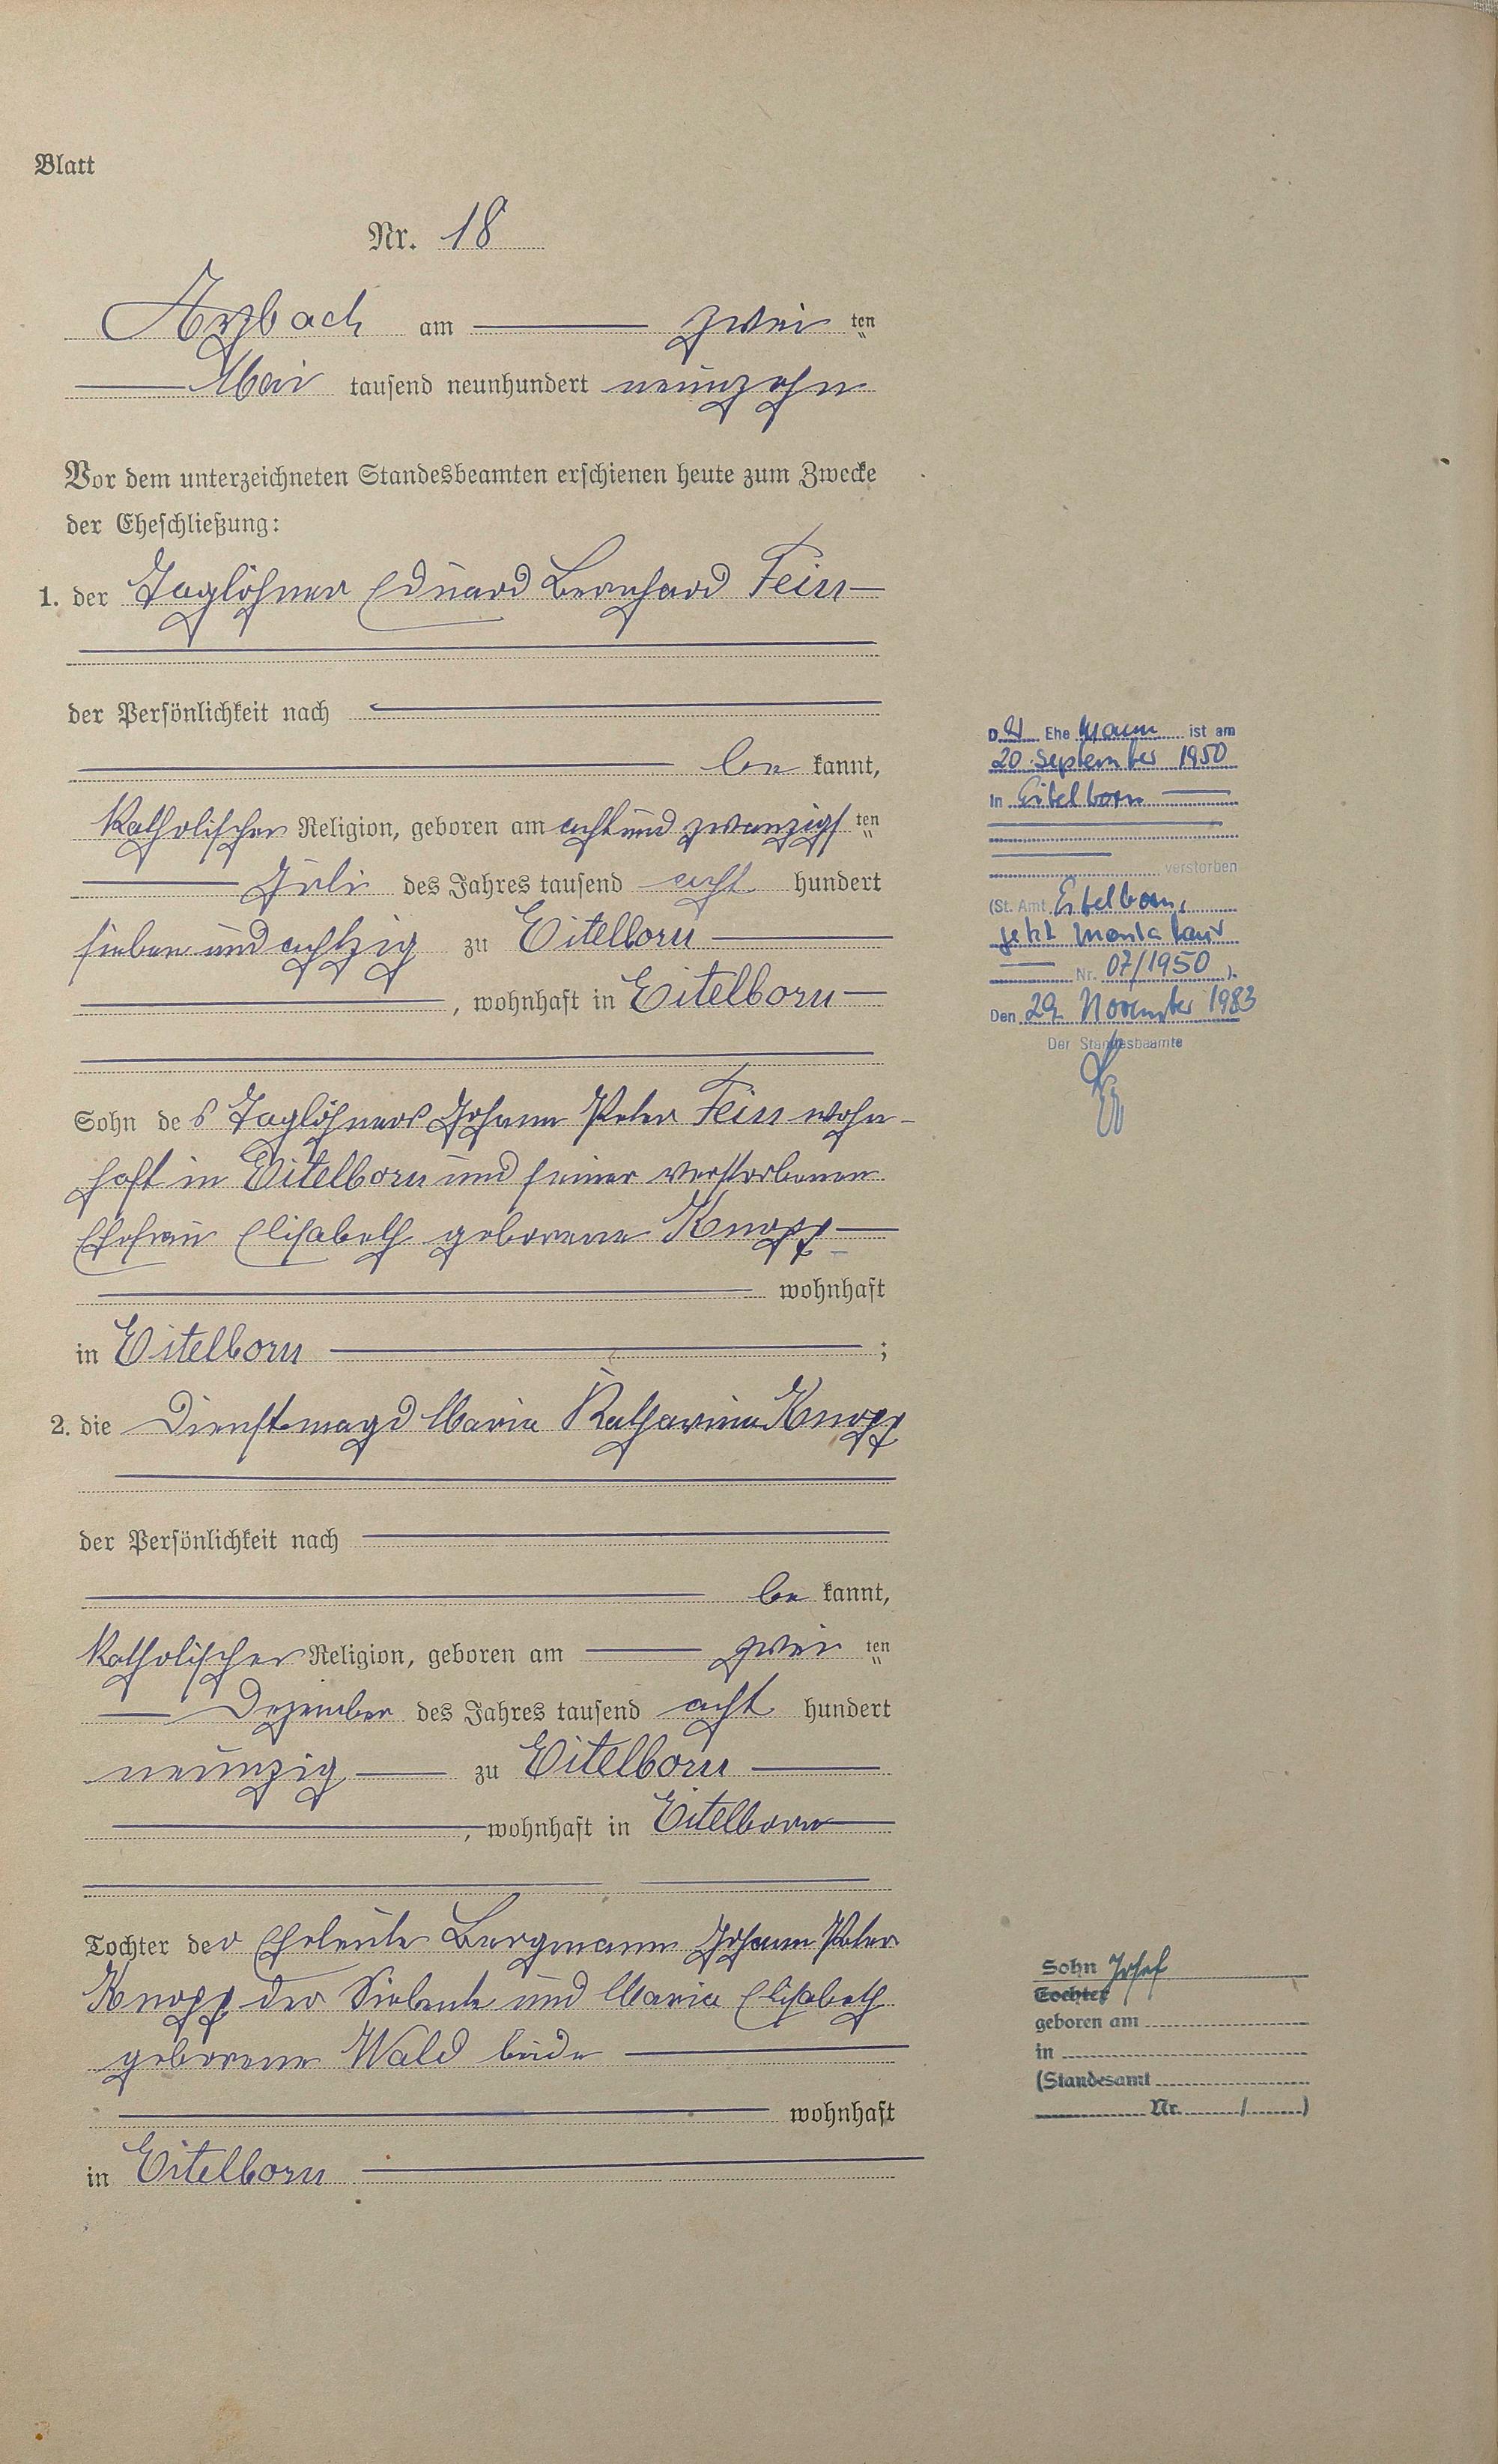 Blatt
Nr. 18
Arzbach am zweiten
Mai tausend neunhundert neunzehn
Vor dem unterzeichneten Standesbeamten erschienen heute zum Zwecke
der Eheschließung:
1. der Taglöhner Eduard Bernhard Feiss
der Persönlichkeit nach
be kannt,
Katholischer Religion, geboren am achtundzwanzigsten
Juli des Jahres tausend acht hundert
sieben und achtzig zu Eitelborn
, wohnhaft in Eitelborn
Sohn des Taglöhners Johann Peter Feiss wohn-
haft in Eitelborn und seiner verstorbenen
Ehefrau Elisabeth geborene Knopp
wohnhaft
in Eitelborn ;
2. die Dienstmagd Maria Katharina Knopp
der Persönlichkeit nach
be kannt,
Katholischer Religion, geboren am zweiten
Dezember des Jahres tausend acht hundert
neunzig zu Eitelborn
, wohnhaft in Eitelborn
Tochter der Eheleute Bergmann Johann Peter
Knopp der Siebente und Maria Elisabeth
geborene Wald beide
wohnhaft
in Eitelborn
Der Ehe Mann ist am
20. September 1950
in Eitelborn
verstorben
(St. Amt Eitelborn,
jetzt Montabaur
Nr. 07/1950 ).
Den 29. November 1983
Der Standesbeamte
Sohn Josef
Tochter
geboren am
in
(Standesamt
Nr. / )